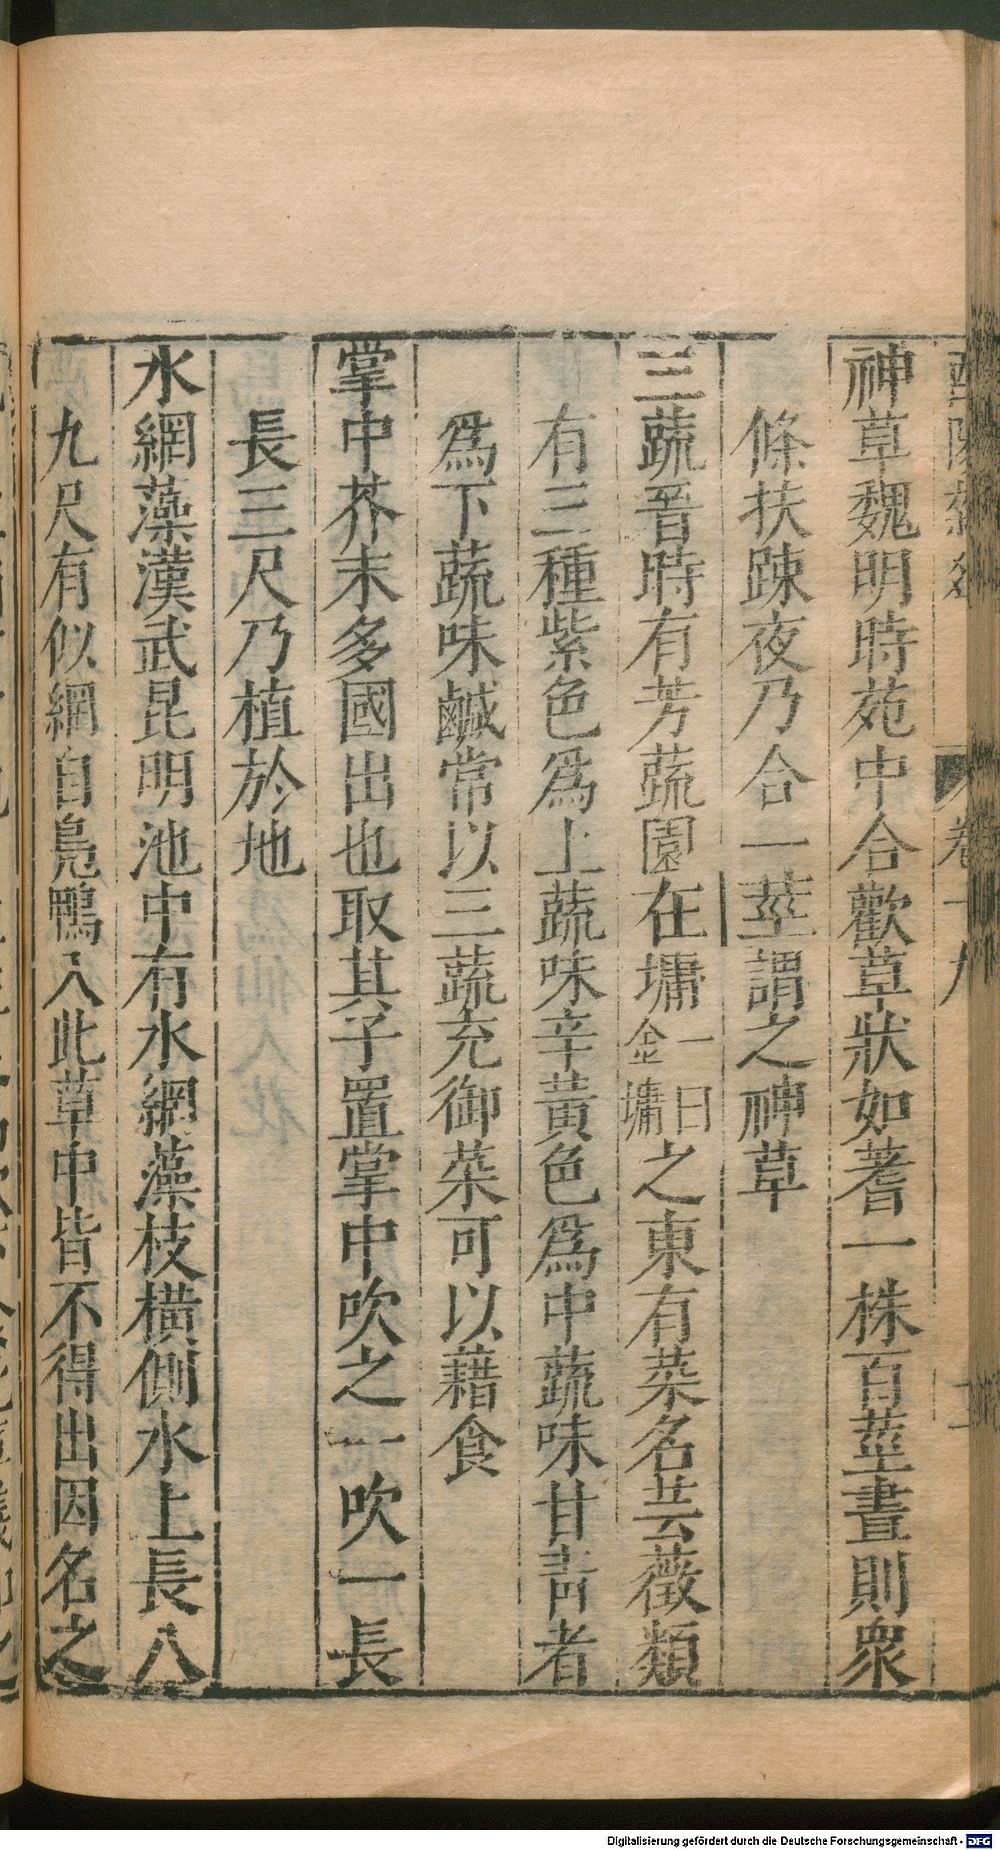 神草魏明時苑中合歡草狀如蓍一株百莖晝則衆
條扶踈夜乃合一莖謂之神草
三蔬晉時有芳蔬園在墉一曰金墉之東有菜名芸薇類
有三種紫色爲上蔬味辛黃色爲中蔬味甘靑者
爲下蔬味鹹常以三蔬充御菜可以藉食
掌中芥末多國出也取其子置掌中吹之一吹一長
長三尺乃植於地
水網藻漢武昆明池中有水網藻枝橫側水上長八
九尺有似網目鳧鴨入此草中皆不得出因名之
Digitalisierung gefördert durch die Deutsche Forschungsgemeinschaft - DFG